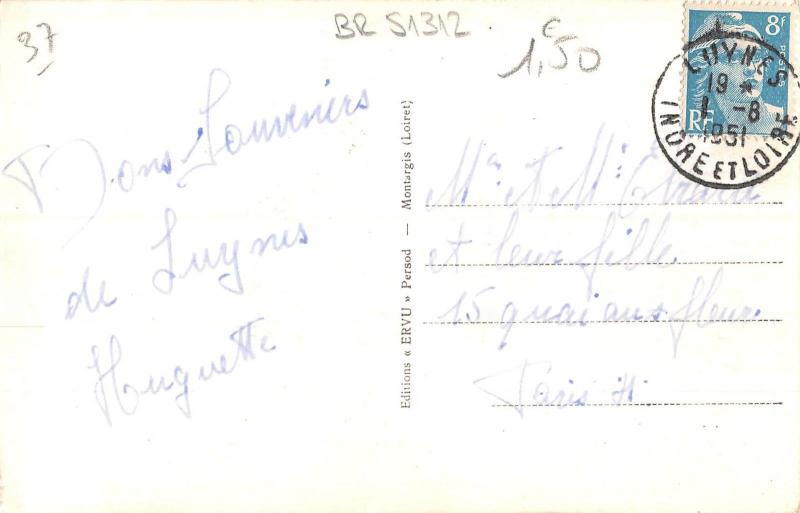 37
BR 51312
€
1,50
8f
POSTES
RF
LUYNES
19 *
1 -8
1951
INDRE ET LOIRE
Bons Souvenirs
de Luynes
Huguette
Editions « ERVU » Persod — Montargis (Loiret)
Mr et Me
et leur fille
15 quai aux fleurs
Paris